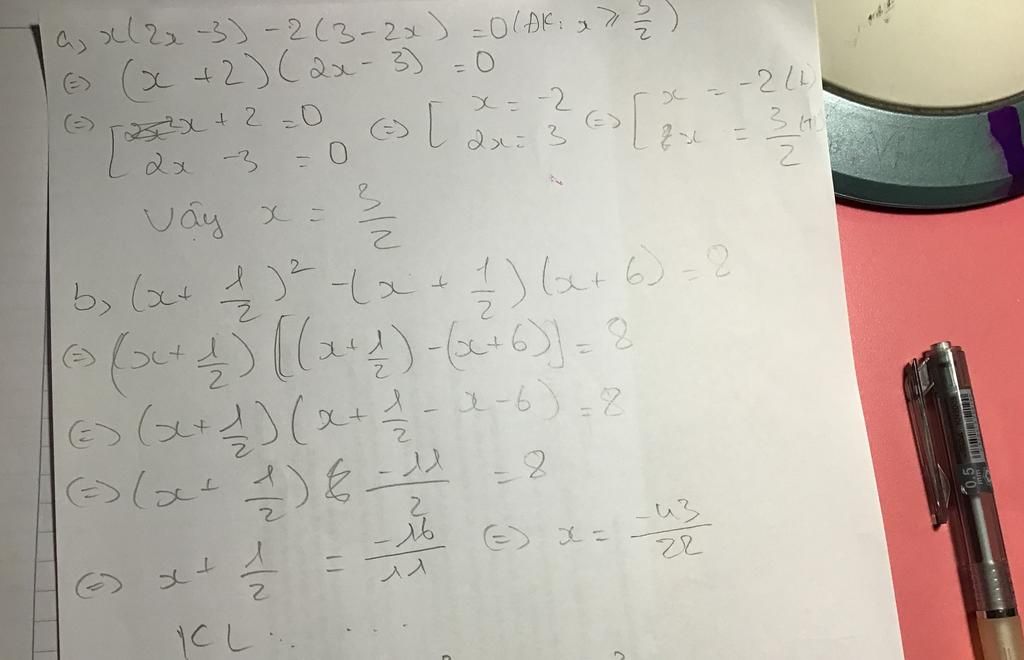 a, x(2x - 3) - 2(3 - 2x) = 0 (ĐK: x ⩾ 3/2)
(=) (x + 2)(2x - 3) = 0
(=) [ x + 2 = 0 (=) [ x = -2 (=) [ x = -2 (L)
2x - 3 = 0 2x = 3 x = 3/2 (TM)
Vậy x = 3/2
b, (x + 1/2)² - (x + 1/2)(x + 6) = 8
(=) (x + 1/2) [(x + 1/2) - (x + 6)] = 8
(=) (x + 1/2)(x + 1/2 - x - 6) = 8
(=) (x + 1/2) -11/2 = 8
(=) x + 1/2 = -16/11 (=) x = -43/22
KL : ....
0.5